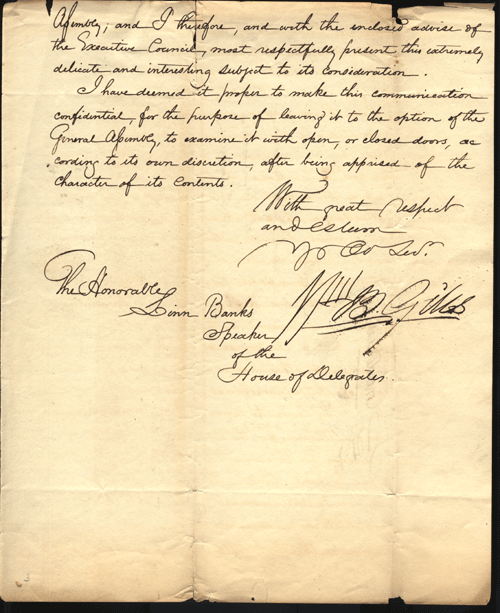 Assembly; and I therefore, and with the enclosed advise of
the Executive Council, most respectfully present this extremely
delicate and interesting subject to its consideration.
I have deemed it proper to make this communication
confidential, for the purpose of leaving it to the option of the
General Assembly, to examine it with open, or closed doors, ac
cording to its own discretion, after being apprised of the
character of its contents.
With great respect
and esteem
Yr Ob Servt.
Wm B. Giles
The Honorable
Linn Banks
Speaker
of the
House of Delegates.